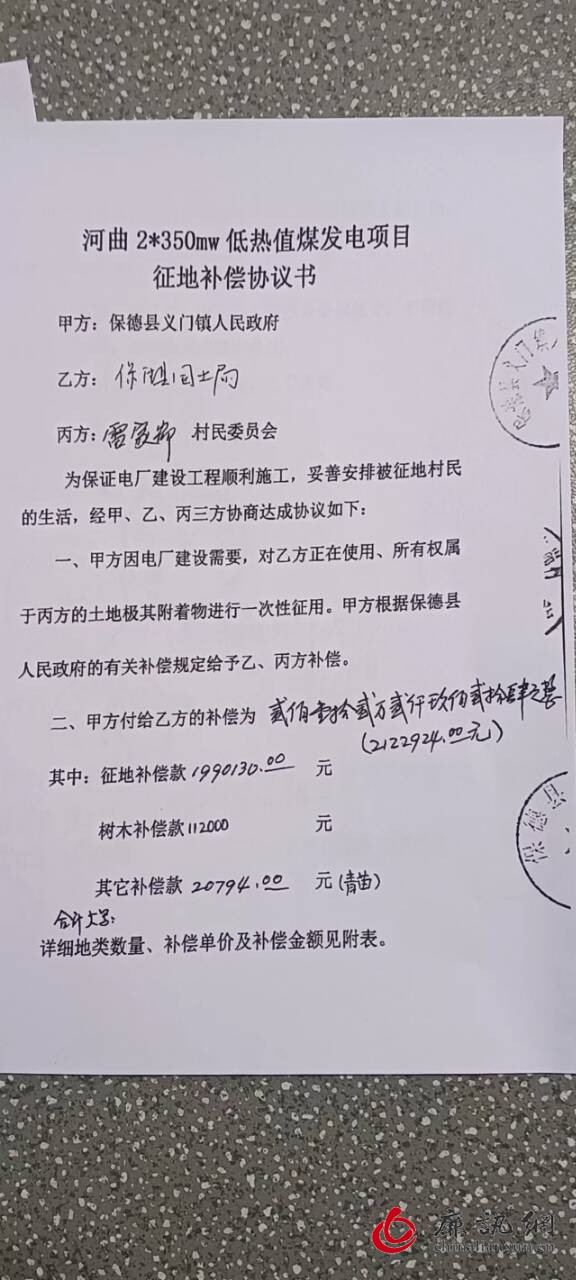 河曲2*350mw低热值煤发电项目
征地补偿协议书
甲方：保德县义门镇人民政府
乙方：保德县国土局
丙方：雷家峁 村民委员会
为保证电厂建设工程顺利施工，妥善安排被征地村民
的生活，经甲、乙、丙三方协商达成协议如下：
一、甲方因电厂建设需要，对乙方正在使用、所有权属
于丙方的土地极其附着物进行一次性征用。甲方根据保德县
人民政府的有关补偿规定给予乙、丙方补偿。
二、甲方付给乙方的补偿为 贰佰壹拾贰万贰仟玖佰贰拾肆元整
(2122924.00元)
其中：征地补偿款1990130.00 元
树木补偿款112000 元
其它补偿款20794.00 元(青苗)
合计大写：
详细地类数量、补偿单价及补偿金额见附表。
保德县义门镇人
保德县
廉讯網